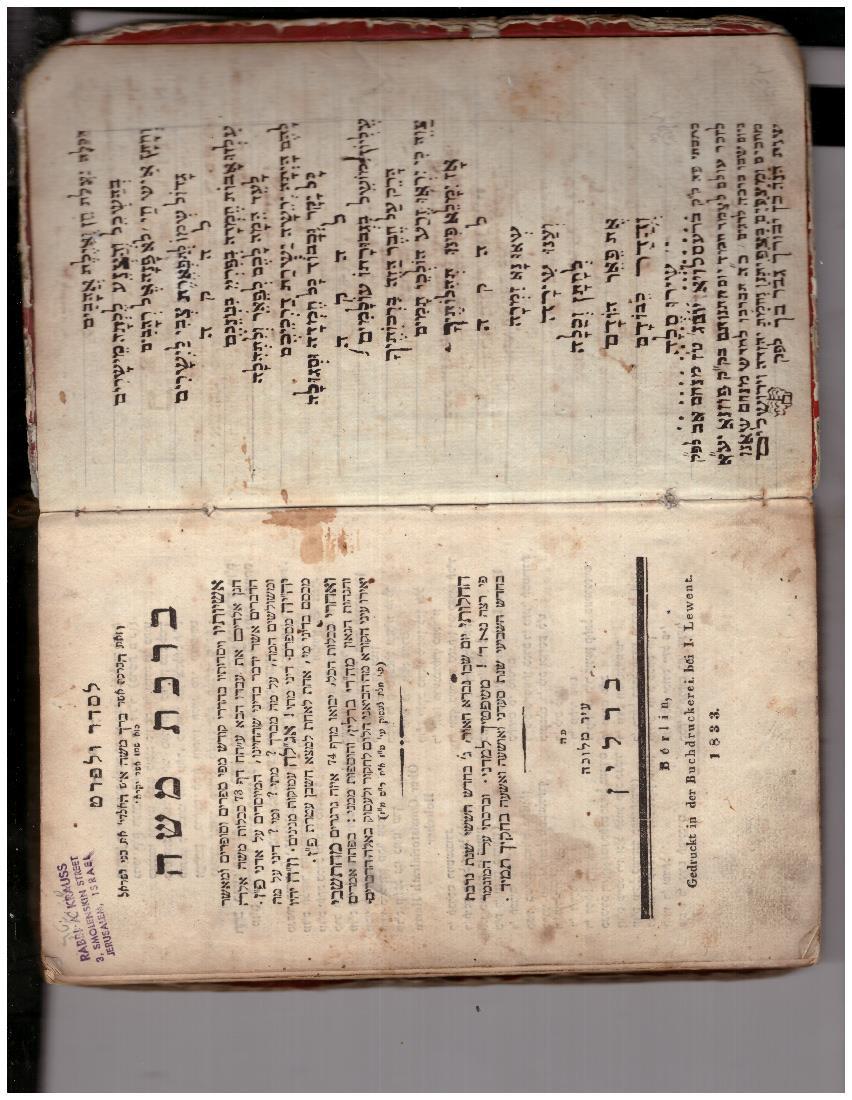 RABBI A. KRAUSS
3, SMOLENSKIN STREET
JERUSALEM, ISRAEL
לסדר ולפרט
וזאת הברכה אשר ברך משה איש האלדי' את בני ישראל
הוא שמו אשר יקרא
ברכת משה
אשיותיו ויסדותיו בהדרי קודש מפי ספרים וסופרים ומאשר
חנן אלדים את עבדו הבא עי"תח דף 73 ככלות משה אלדה
הדברים אשר ידבר בדיני שהחיינו, המיוסדים על אדני פ"ז.
ומשולשים המה, על מה מברך? מתי? ומי? דיני על מה
יה"יה מספרם, דיני מתי! אג"לה עמוקות מנינים. וז"ה יהיו
מכסם בדיני מי, אחת לאחת למצא חשבן עטרת פ"ז.
ואחרי ככלות הכל, יבואו מדף 74 איזה גרגרים מהתשבי
והגהות הגאון מה"רי ברלין, והוספות ממני: בפתח אמרים
יאירו עיני הקורא מה הביאני הלום לחקור ולעסוק באלה הדברים.
החלותי יום שבו נברא האור, ג' בחדש הששי שנת נדבת
פי רצה נא ד'! משפטיך למדני. וברכתי על המוגמר
בחדש השביעי שנת סעדני ואושעה ואשעה בחקיך תמיד.
פה
עיר מלוכה
ברלין
Berlin,
Gedruckt in der Buchdruckerei bei I. Lewent.
1833.
הכלה יעלת חן ואילת אהבים
בהשכל והצנע ללכת מישרים
וחתן איש חי לא פנה אל רהבים
גדול שמו לתפארת צבי לישרים
ל ה ק ה
עלזו אבות חמדה בפרי בטנכם
לעד המה לכם לפאר ולתהלה
להם היתה ירשה ישרת דרכיכם
כל יקר וכבוד כל חמדה וסגולה
ל ה ק ה
עליון מושל בגבורתו עולמים
הרק על חבר הזה ברכותיך
צוה כי יראו זרע הולכי תמים
אז ימלא פינו תהלותיך
ל ה ק ה
שאו נא זמרה
וענו שירה
לחתן וכלה
את פאר הודם
והדר כבודם
שירו סלה
כתבתי פה ק"ק ברעסלויא יום ג' ט"ז מנחם אב לפ"ק
לזכר עולם יום חתונתם בק"ק פוזנא יע"א